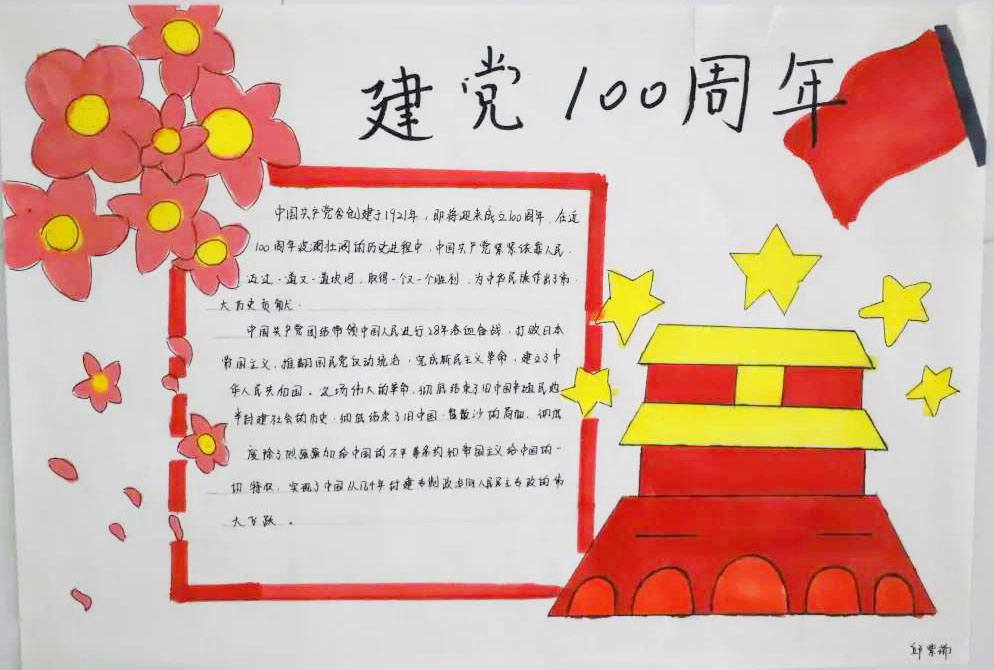 建党100周年
中国共产党合创建于1921年，即将迎来成立100周年．在近
100周年波澜壮阔的历史进程中，中国共产党紧紧依靠人民．
迈过一道又一道坎坷，取得一个又一个胜利，为中华民族作出了伟
大历史贡献．
中国共产党团结带领中国人民进行28年浴血奋战，打败日本
帝国主义，推翻国民党反动统治，完成新民主主义革命，建立了中
华人民共和国。这场伟大的革命，彻底结束了旧中国半殖民地
半封建社会的历史，彻底结束了旧中国一盘散沙的局面，彻底
废除了列强强加给中国的不平等条约和帝国主义给中国的一
切特权，实现了中国从几千年封建专制政治向人民民主专政的伟
大飞跃。
邱紫